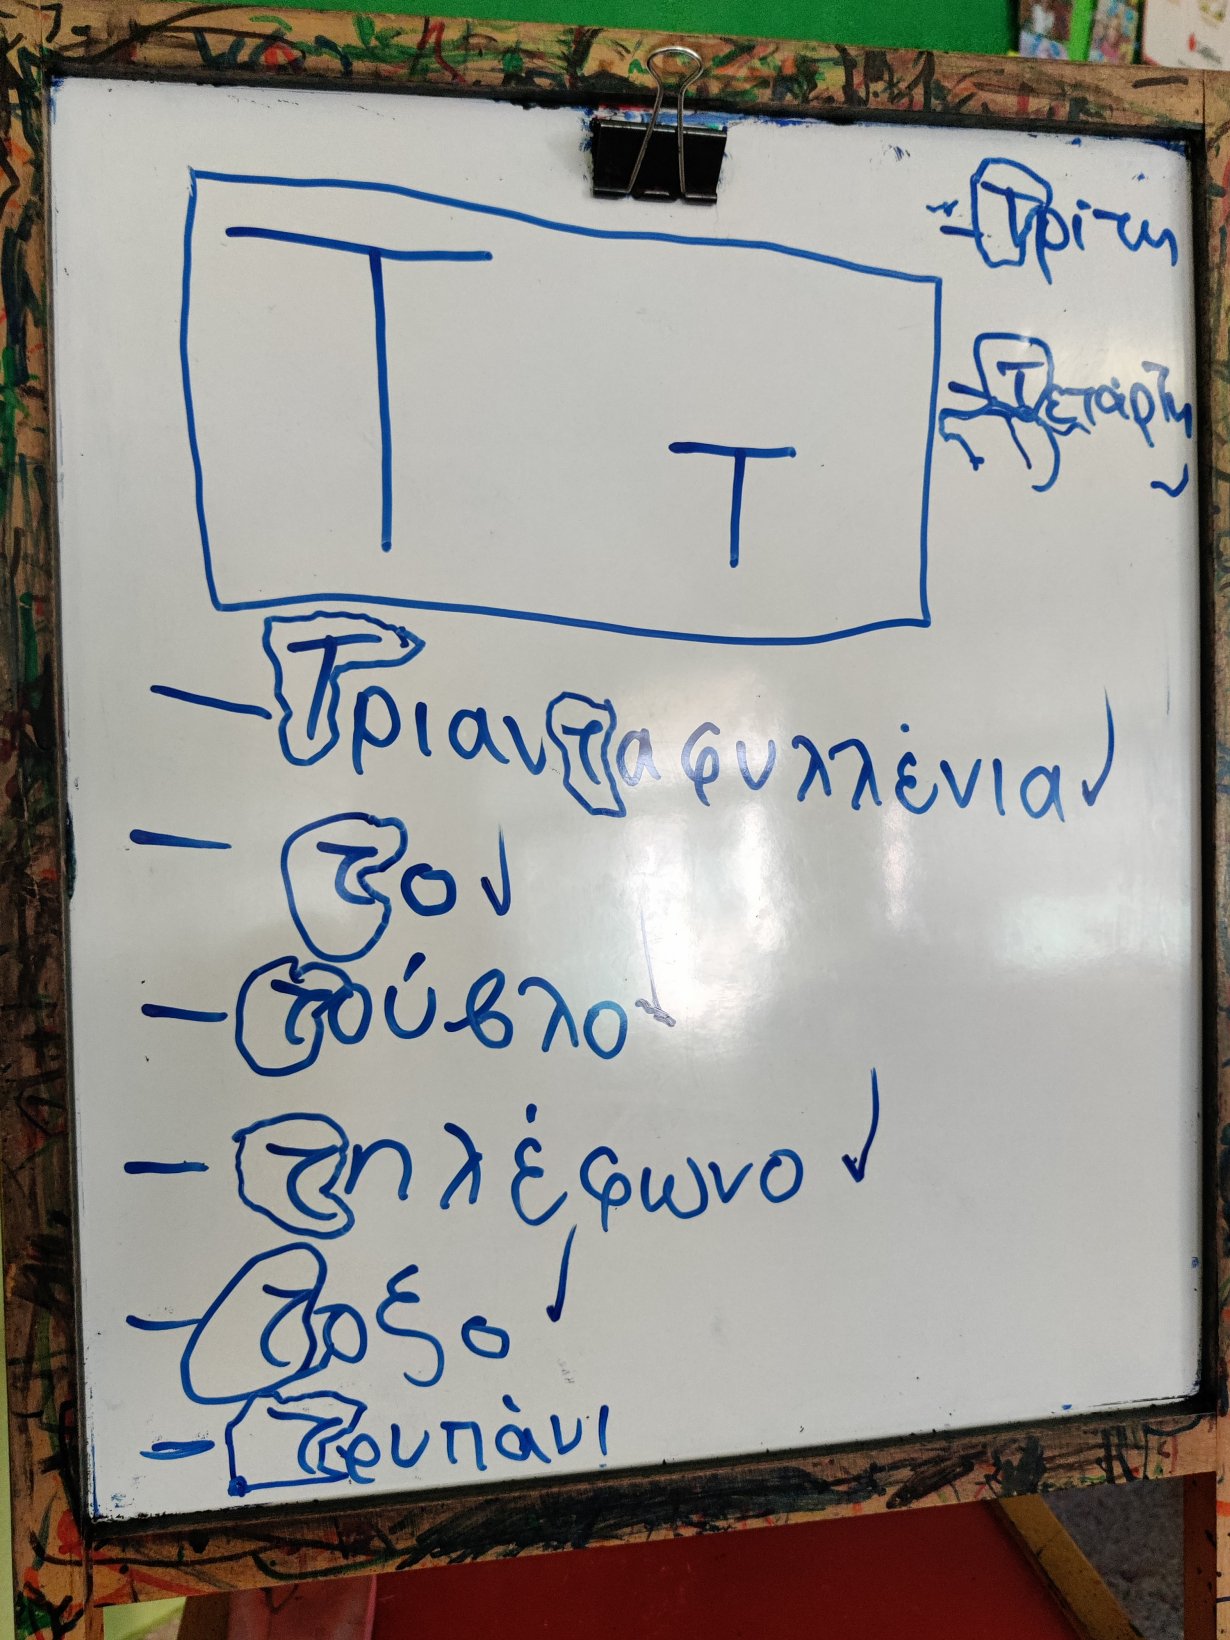 Τ τ
- Τρίτη
- Τετάρτη
- Τριανταφυλλένια
- το
- τούβλο
- τηλέφωνο
- τοξο
- τρυπάνι